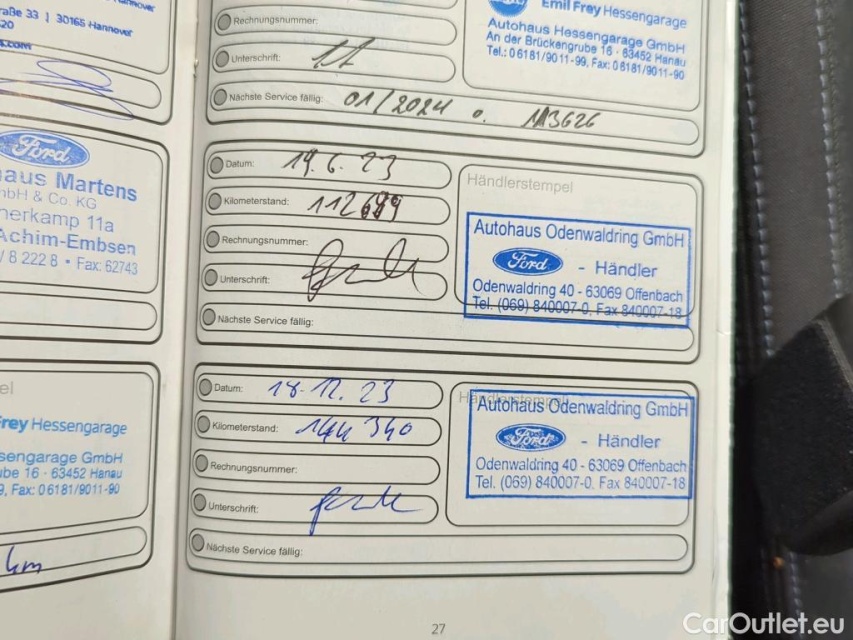 nnover
raße 33 | 30165 Hannover
Ford
aus Martens
mbH & Co. KG
nerkamp 11a
Achim-Embsen
/ 8 222 8 • Fax: 62743
Frey Hessengarage
ssengarage GmbH
ube 16 · 63452 Hanau
9, Fax: 06181/9011-90
km
Rechnungsnummer:
Unterschrift:
Nächste Service fällig: 01/2024 o.
Emil Frey Hessengarage
Autohaus Hessengarage GmbH
An der Brückengrube 16 · 63452 Hanau
Tel.: 06181/9011-99, Fax: 06181/9011-90
Datum: 19.6.23
Kilometerstand:
Rechnungsnummer:
Unterschrift:
Nächste Service fällig:
Händlerstempel
Autohaus Odenwaldring GmbH
Ford - Händler
Odenwaldring 40 - 63069 Offenbach
Tel. (069) 840007-0, Fax 840007-18
Datum: 18.12.23
Kilometerstand: 144 340
Rechnungsnummer:
Unterschrift:
Nächste Service fällig:
Händlerstempel
Autohaus Odenwaldring GmbH
Ford - Händler
Odenwaldring 40 - 63069 Offenbach
Tel. (069) 840007-0, Fax 840007-18
27
CarOutlet.eu